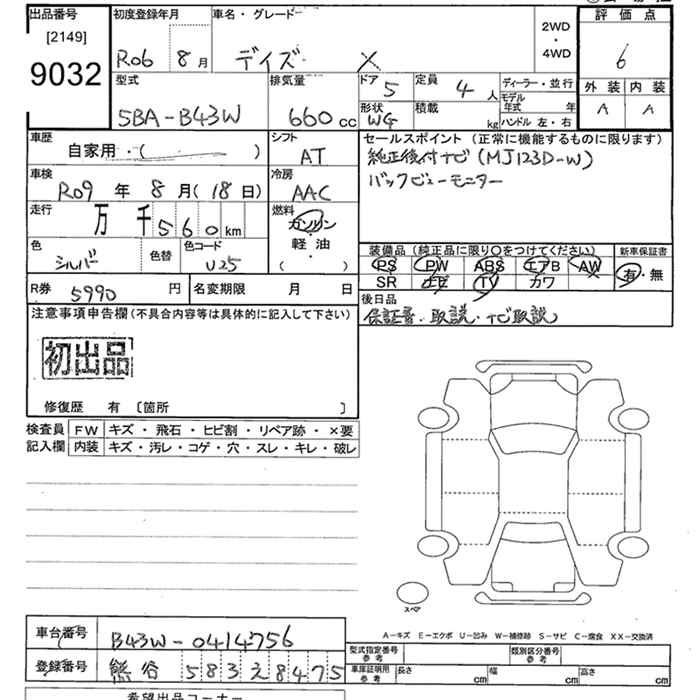 出品番号
[2149]
9032
初度登録年月
R06 8 月
車名・グレード
デイズ X
2WD
・
4WD
評価点
6
外装 内装
A A
型式
5BA-B43W
排気量
660 cc
ドア 5
形状 WG
定員 4 人
積載 kg
ディーラー・並行
モデル年式 年
ハンドル 左・右
車歴
自家用・( )
シフト
AT
車検
R09 年 8 月(18日)
冷房
AAC
走行
万 千 5 6 0 km
燃料
ガソリン
・
軽油
( )
色
シルバー
色替
色コード
U25
R券 5990 円
名変期限 月 日
セールスポイント (正常に機能するものに限ります)
純正後付ナビ(MJ123D-W)
バックビューモニター
装備品 (純正品に限り○をつけてください)
PS PW ABS エアB AW
SR ナビ TV カワ
新車保証書
有・無
後日品
保証書・取説・ナビ取説
注意事項申告欄(不具合内容等は具体的に記入して下さい)
初出品
修復歴 有 〔箇所 〕
検査員記入欄
FW キズ・飛石・ヒビ割・リペア跡・×要
内装 キズ・汚レ・コゲ・穴・スレ・キレ・破レ
スペア
A-キズ E-エクボ U-凹み W-補修跡 S-サビ C-腐食 XX-交換済
車台番号 B43W-0414756
登録番号 熊谷 583 え 8475
型式指定番号 参考
類別区分番号 参考
車庫証明用 参考 長さ cm 幅 cm 高さ cm
希望出品コーナー